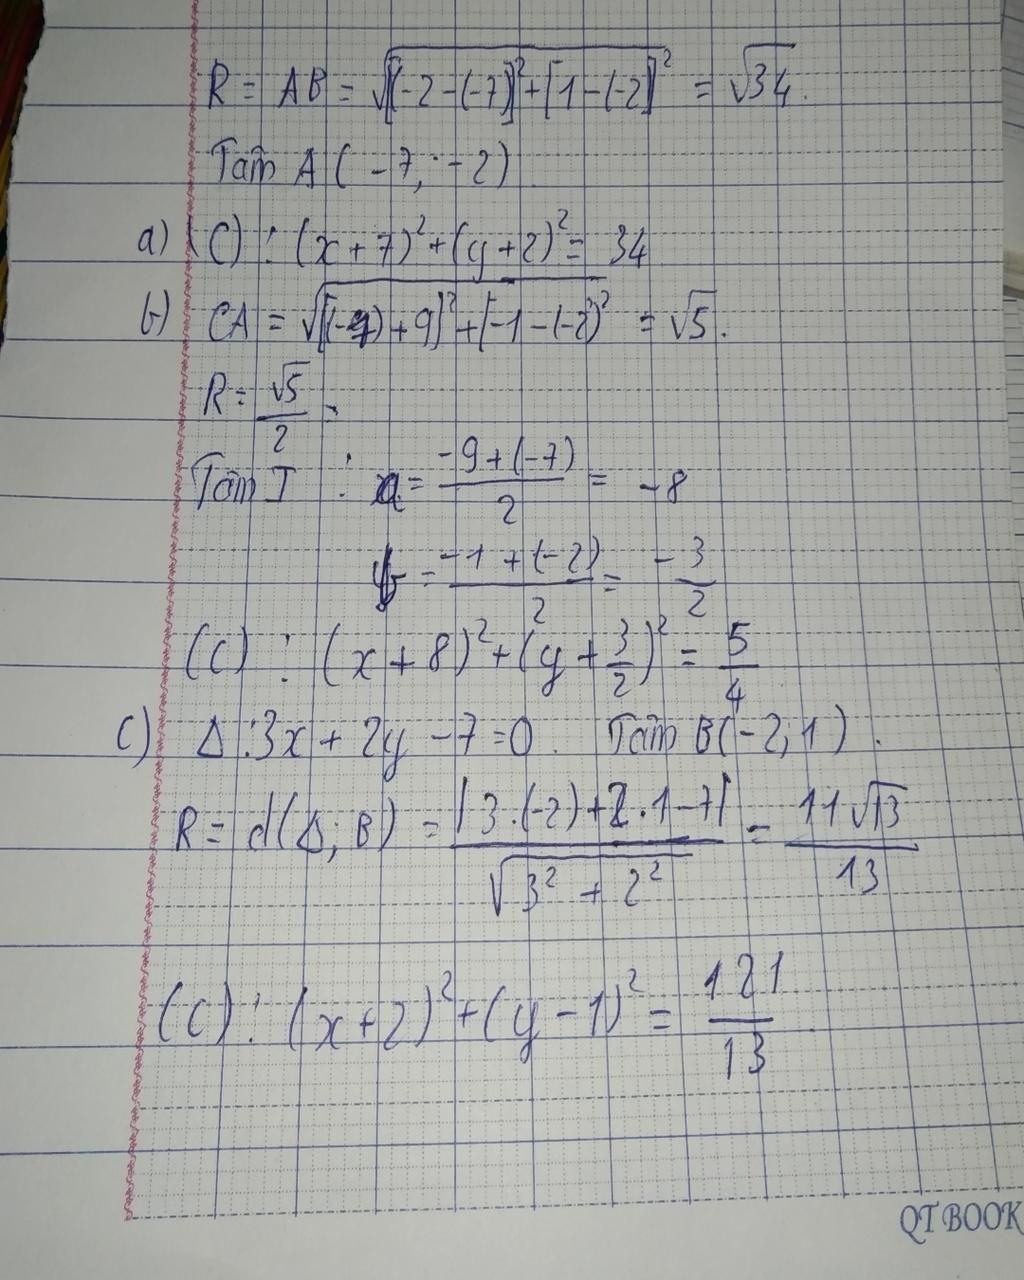 R = AB = √([-2-(-7)]²+[1-(-2)]²) = √34.
Tâm A (-7; -2)
a) (C) : (x+7)²+(y+2)² = 34
b) CA = √([(-7)+9]²+[-1-(-2)]²) = √5.
R = √5/2
Tâm I : a = (-9+(-7))/2 = -8
b = (-1+(-2))/2 = -3/2
(C) : (x+8)²+(y+3/2)² = 5/4
c) Δ : 3x + 2y - 7 = 0. Tâm B(-2; 1).
R = d(Δ; B) = |3.(-2)+2.1-7|/√(3²+2²) = 11√13/13
(C) : (x+2)²+(y-1)² = 121/13
QT BOOK